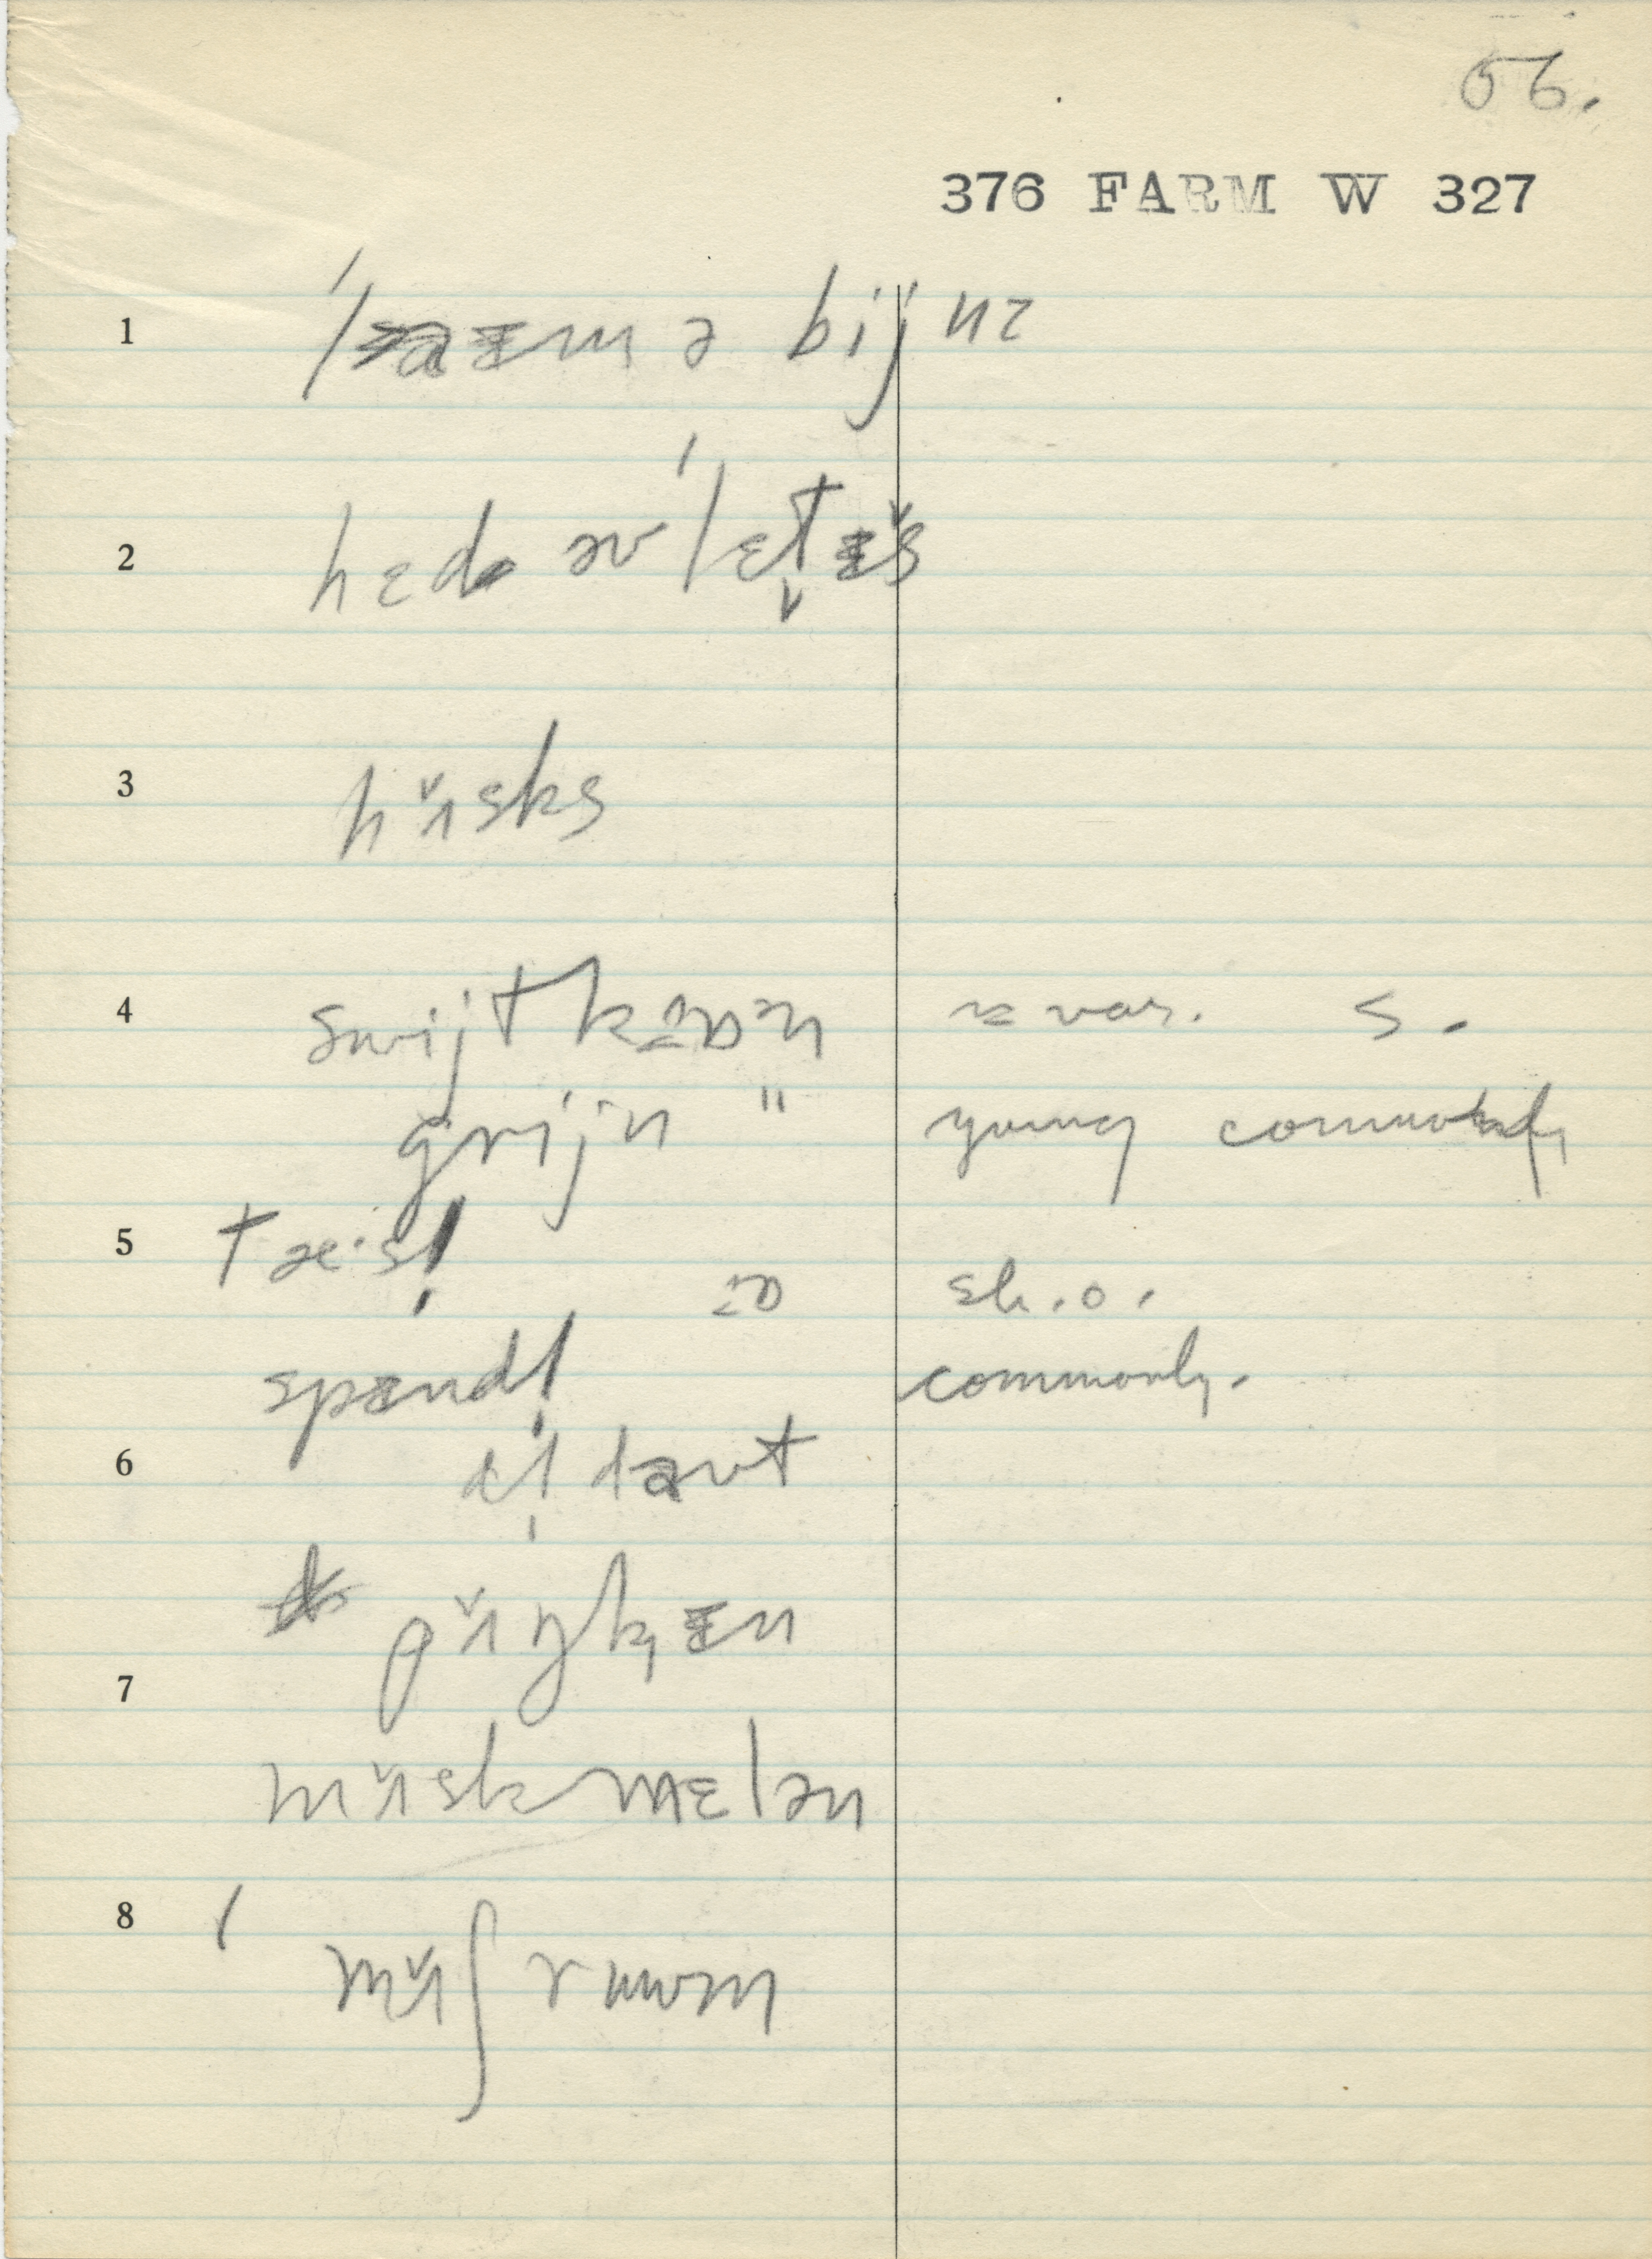 56.
376 FARM W 327
1 ˈlæmə bijnz
2 hɛd əv ˈlɛt̬ɪ̌s
3 hʌ̌sks
4 swijtkɔɒən var. S.
grijn " young commonly
5 tæ·sl̩ sh.o.
spɪndl̩ commonly.
6 l̩ dəʊt
pʌ̌ŋkɪn
7 mʌ̌skmɛlən
8 mʌ̌ʃruwm